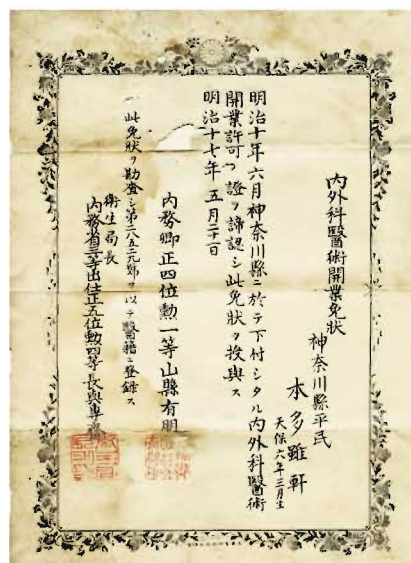 内外科醫術開業免状
神奈川縣平民
本多雖軒
天保六年三月生
明治十年六月神奈川縣ニ於テ下付シタル内外科醫術
開業許可ノ證ヲ諦認シ此免状ヲ授與ス
明治十七年五月二十一日
内務卿正四位勲一等山縣有朋
一此免状ヲ勘査シ第二八五元號ヲ以テ醫籍ニ登録ス
衛生局長
内務省三等出仕正五位勲四等長與專齋